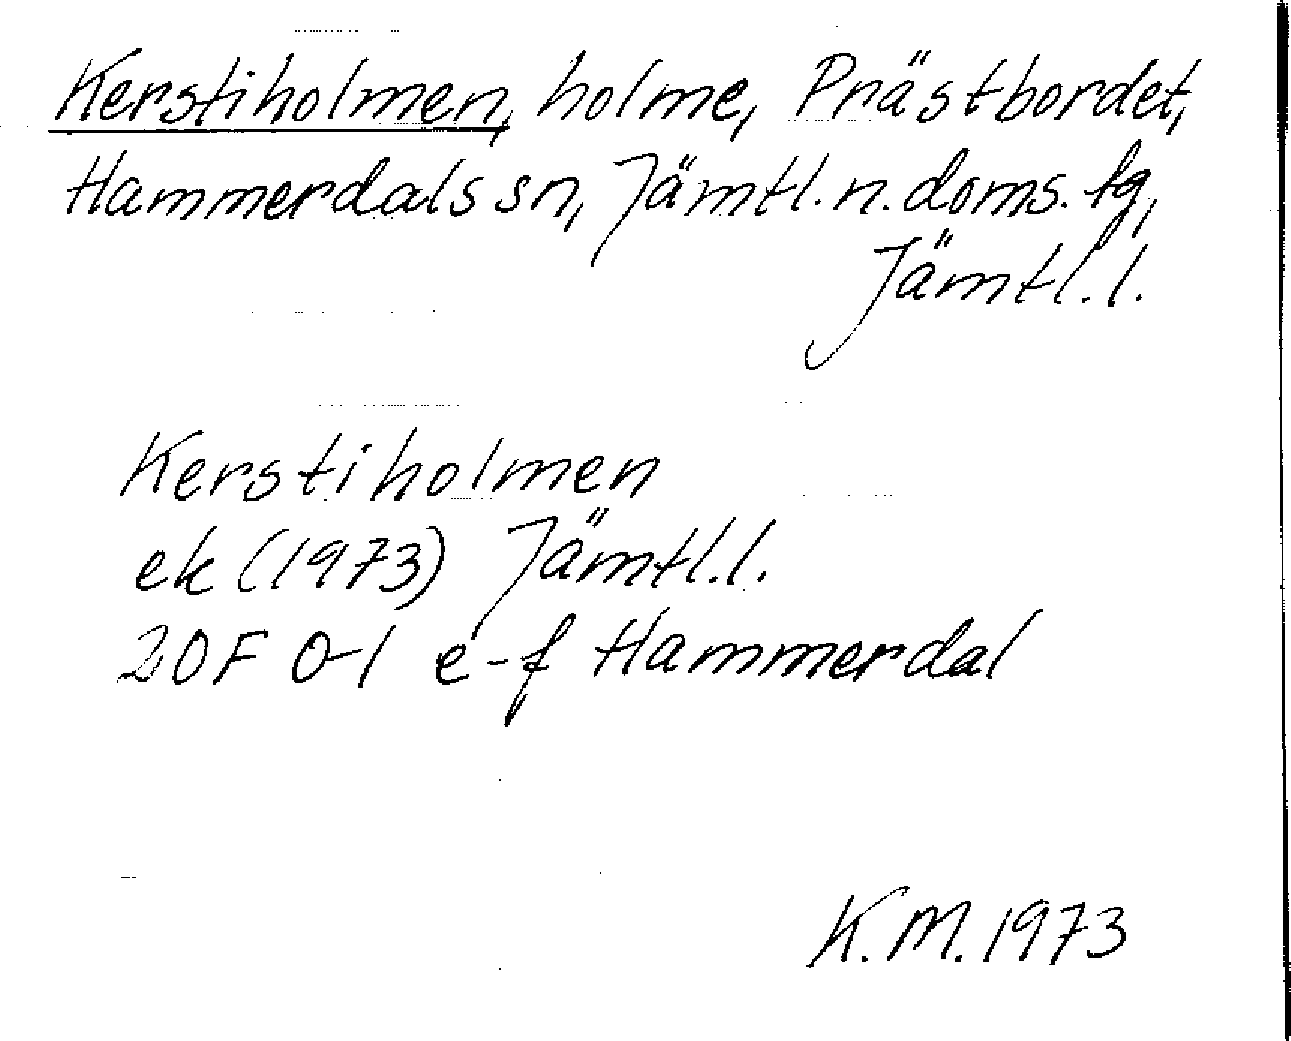 Kerstiholmen, holme, Prästbordet,
Hammerdals sn, Jämtl. n. doms. tg,
Jämtl. l.
Kerstiholmen
ek (1973) Jämtl. l.
20F 0-1 e-f Hammerdal
K. M. 1973